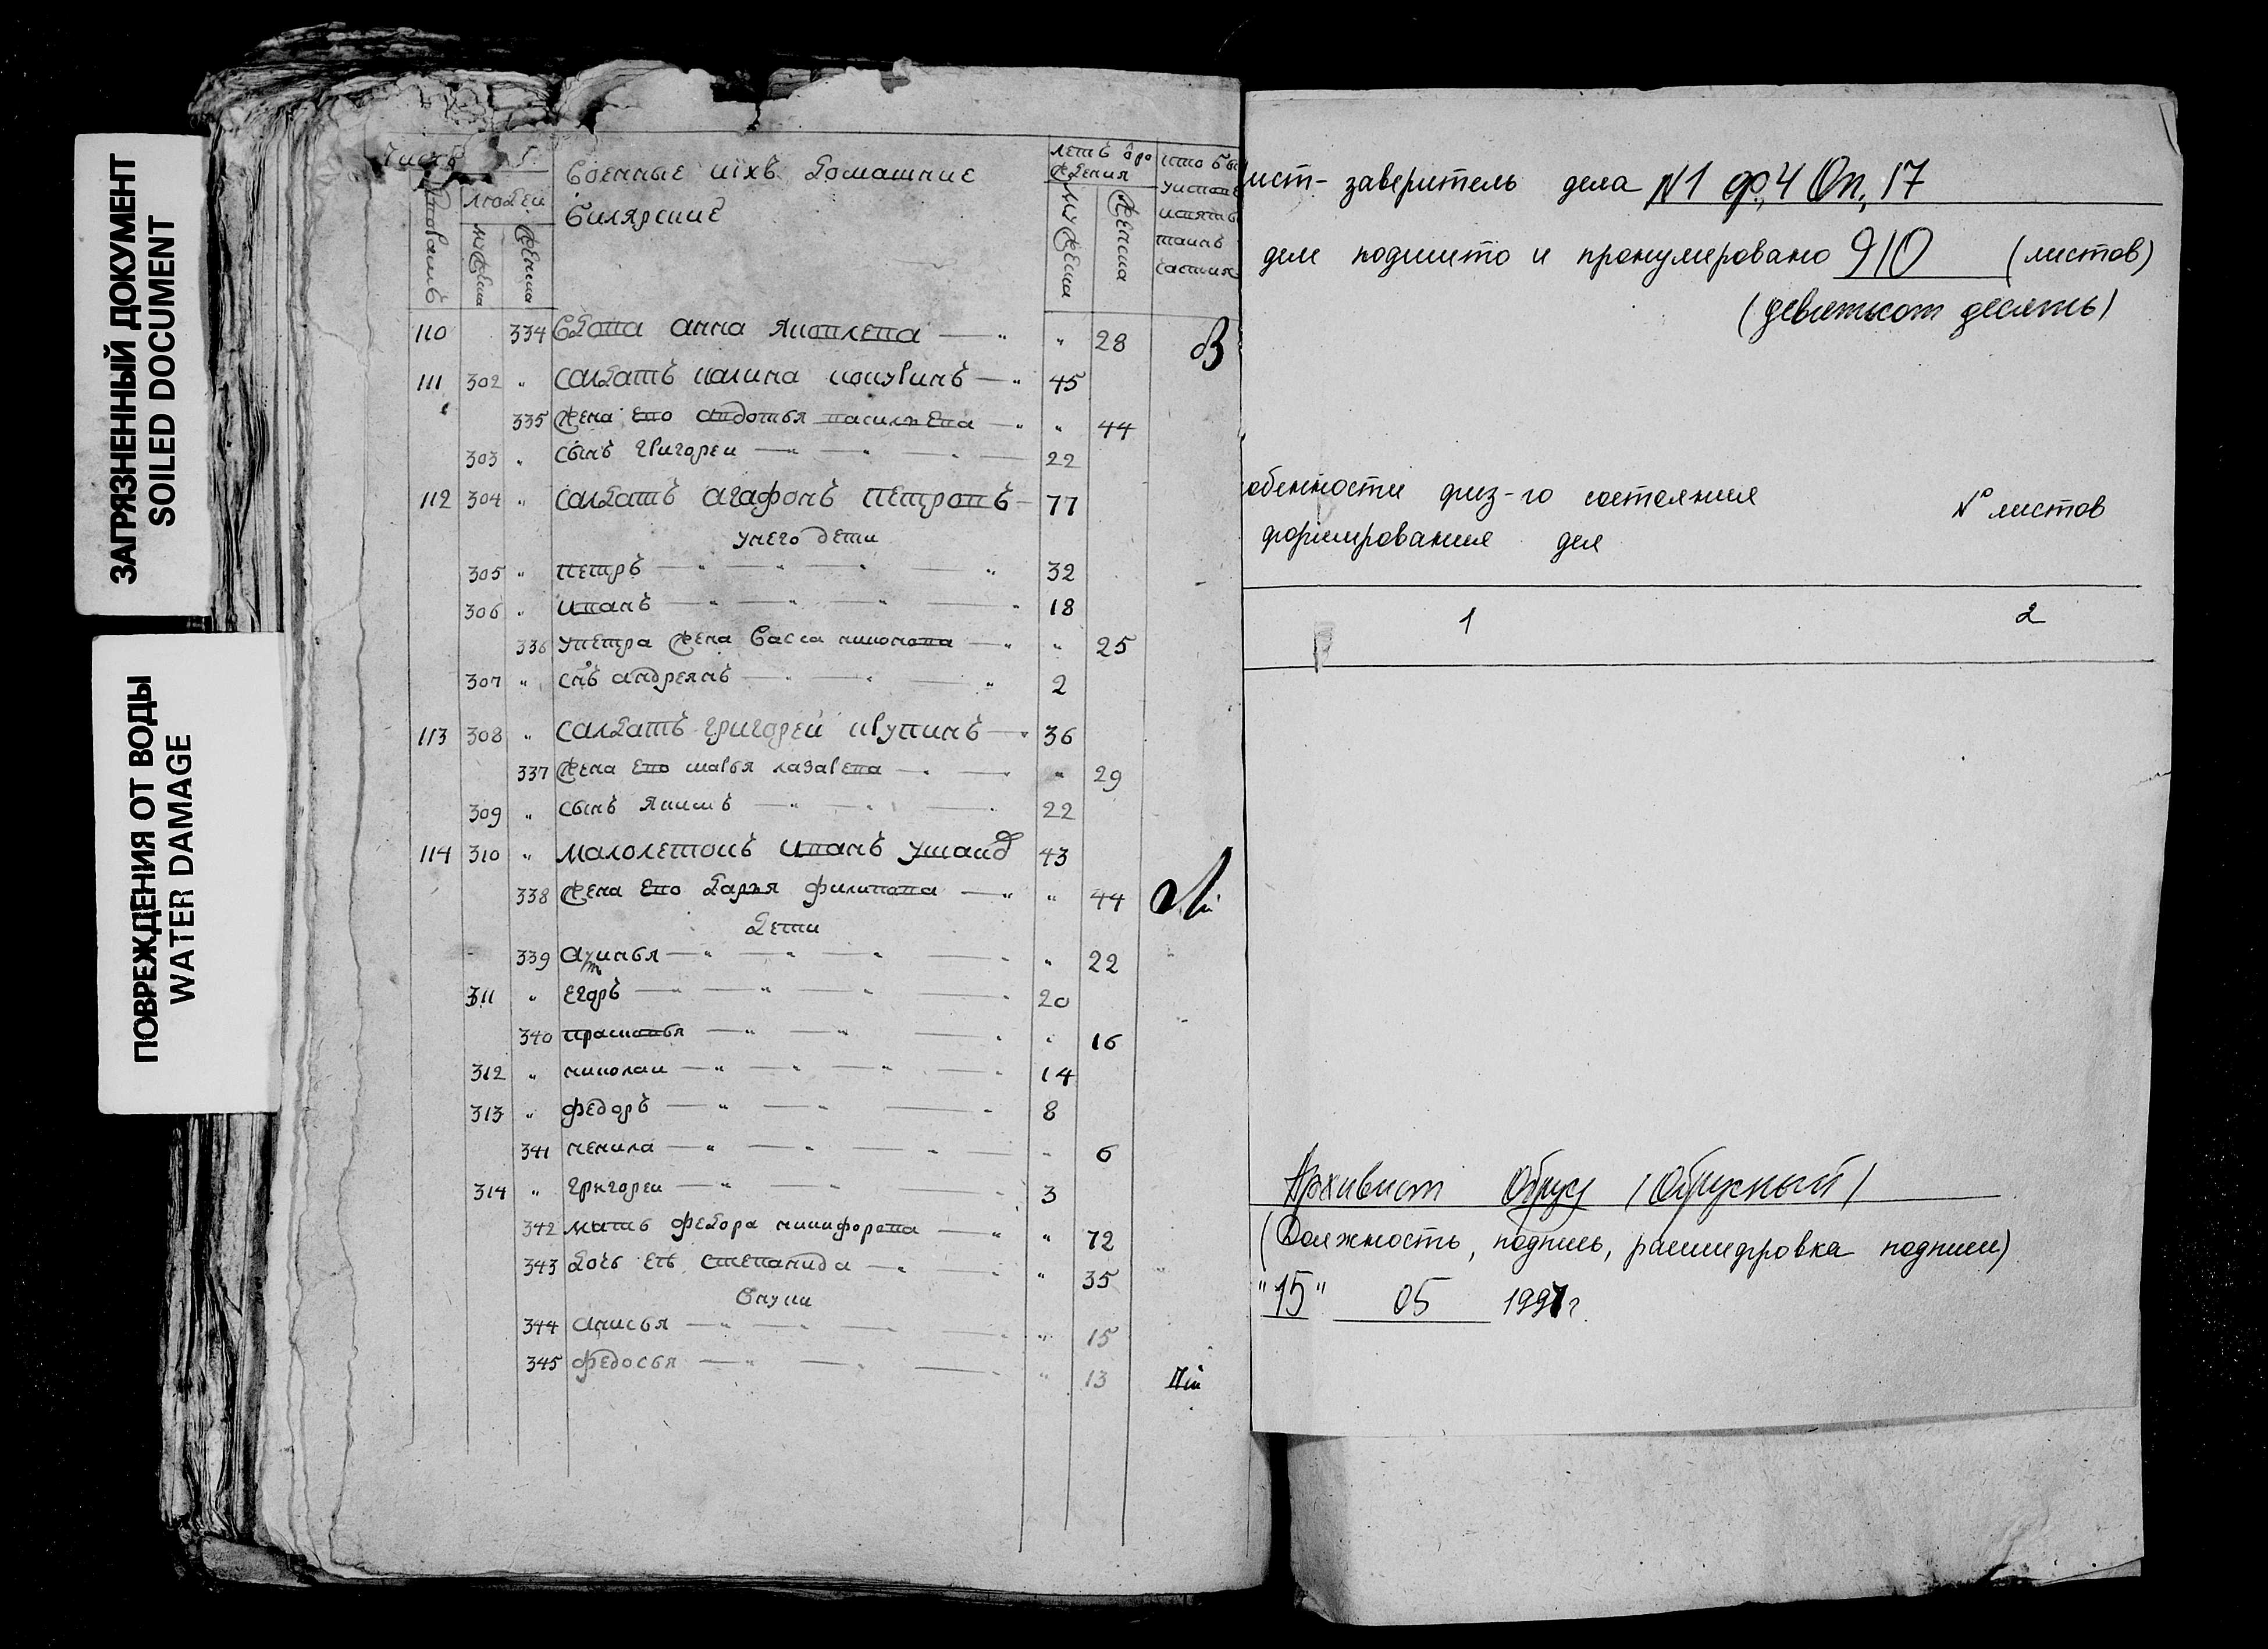 ЗАГРЯЗНЕННЫЙ ДОКУМЕНТ
SOILED DOCUMENT
ПОВРЕЖДЕНИЯ ОТ ВОДЫ
WATER DAMAGE
Число
людей
мужеска
женска
военные ихъ домашние
билярские
летъ от ро
ждения
мужеска
женска
110 334 вдова анна яковлева 28
111 302 " салдатъ калина 45
335 жена ево авдотья васильева " 44
303 " сынъ григореи 22
112 304 " салдатъ агафонъ петровъ 77
унего дети
305 " петръ 32
306 " иванъ 18
336 упетра жена васса никонова " 25
307 " снъ андреянъ 2
113 308 " салдатъ григорей 36
337 жена ево марья лазарева " 29
309 " сынъ якимъ 22
114 310 " малолетокъ иванъ ушаков 43
338 жена ево дарья филипова " 44
дети
339 22
311 " егоръ 20
340 прасковья " 16
312 " николаи 14
313 " федоръ 8
341 ненила 6
314 " григореи 3
342 мать федора никифорова " 72
343 дочь еѣ степанида " 35
внуки
344 анисья " 15
345 федосья " 13
ист-заверитель дела N1 ф.4 Оп.17
деле подшито и пронумеровано 910 (листов)
(девятьсот десять)
обенности физ-го состояния № листов
формирования дел
1 2
Архивист (Обрусный)
(Должность, подпись, расшифровка подписи)
"15" 05 1997г.